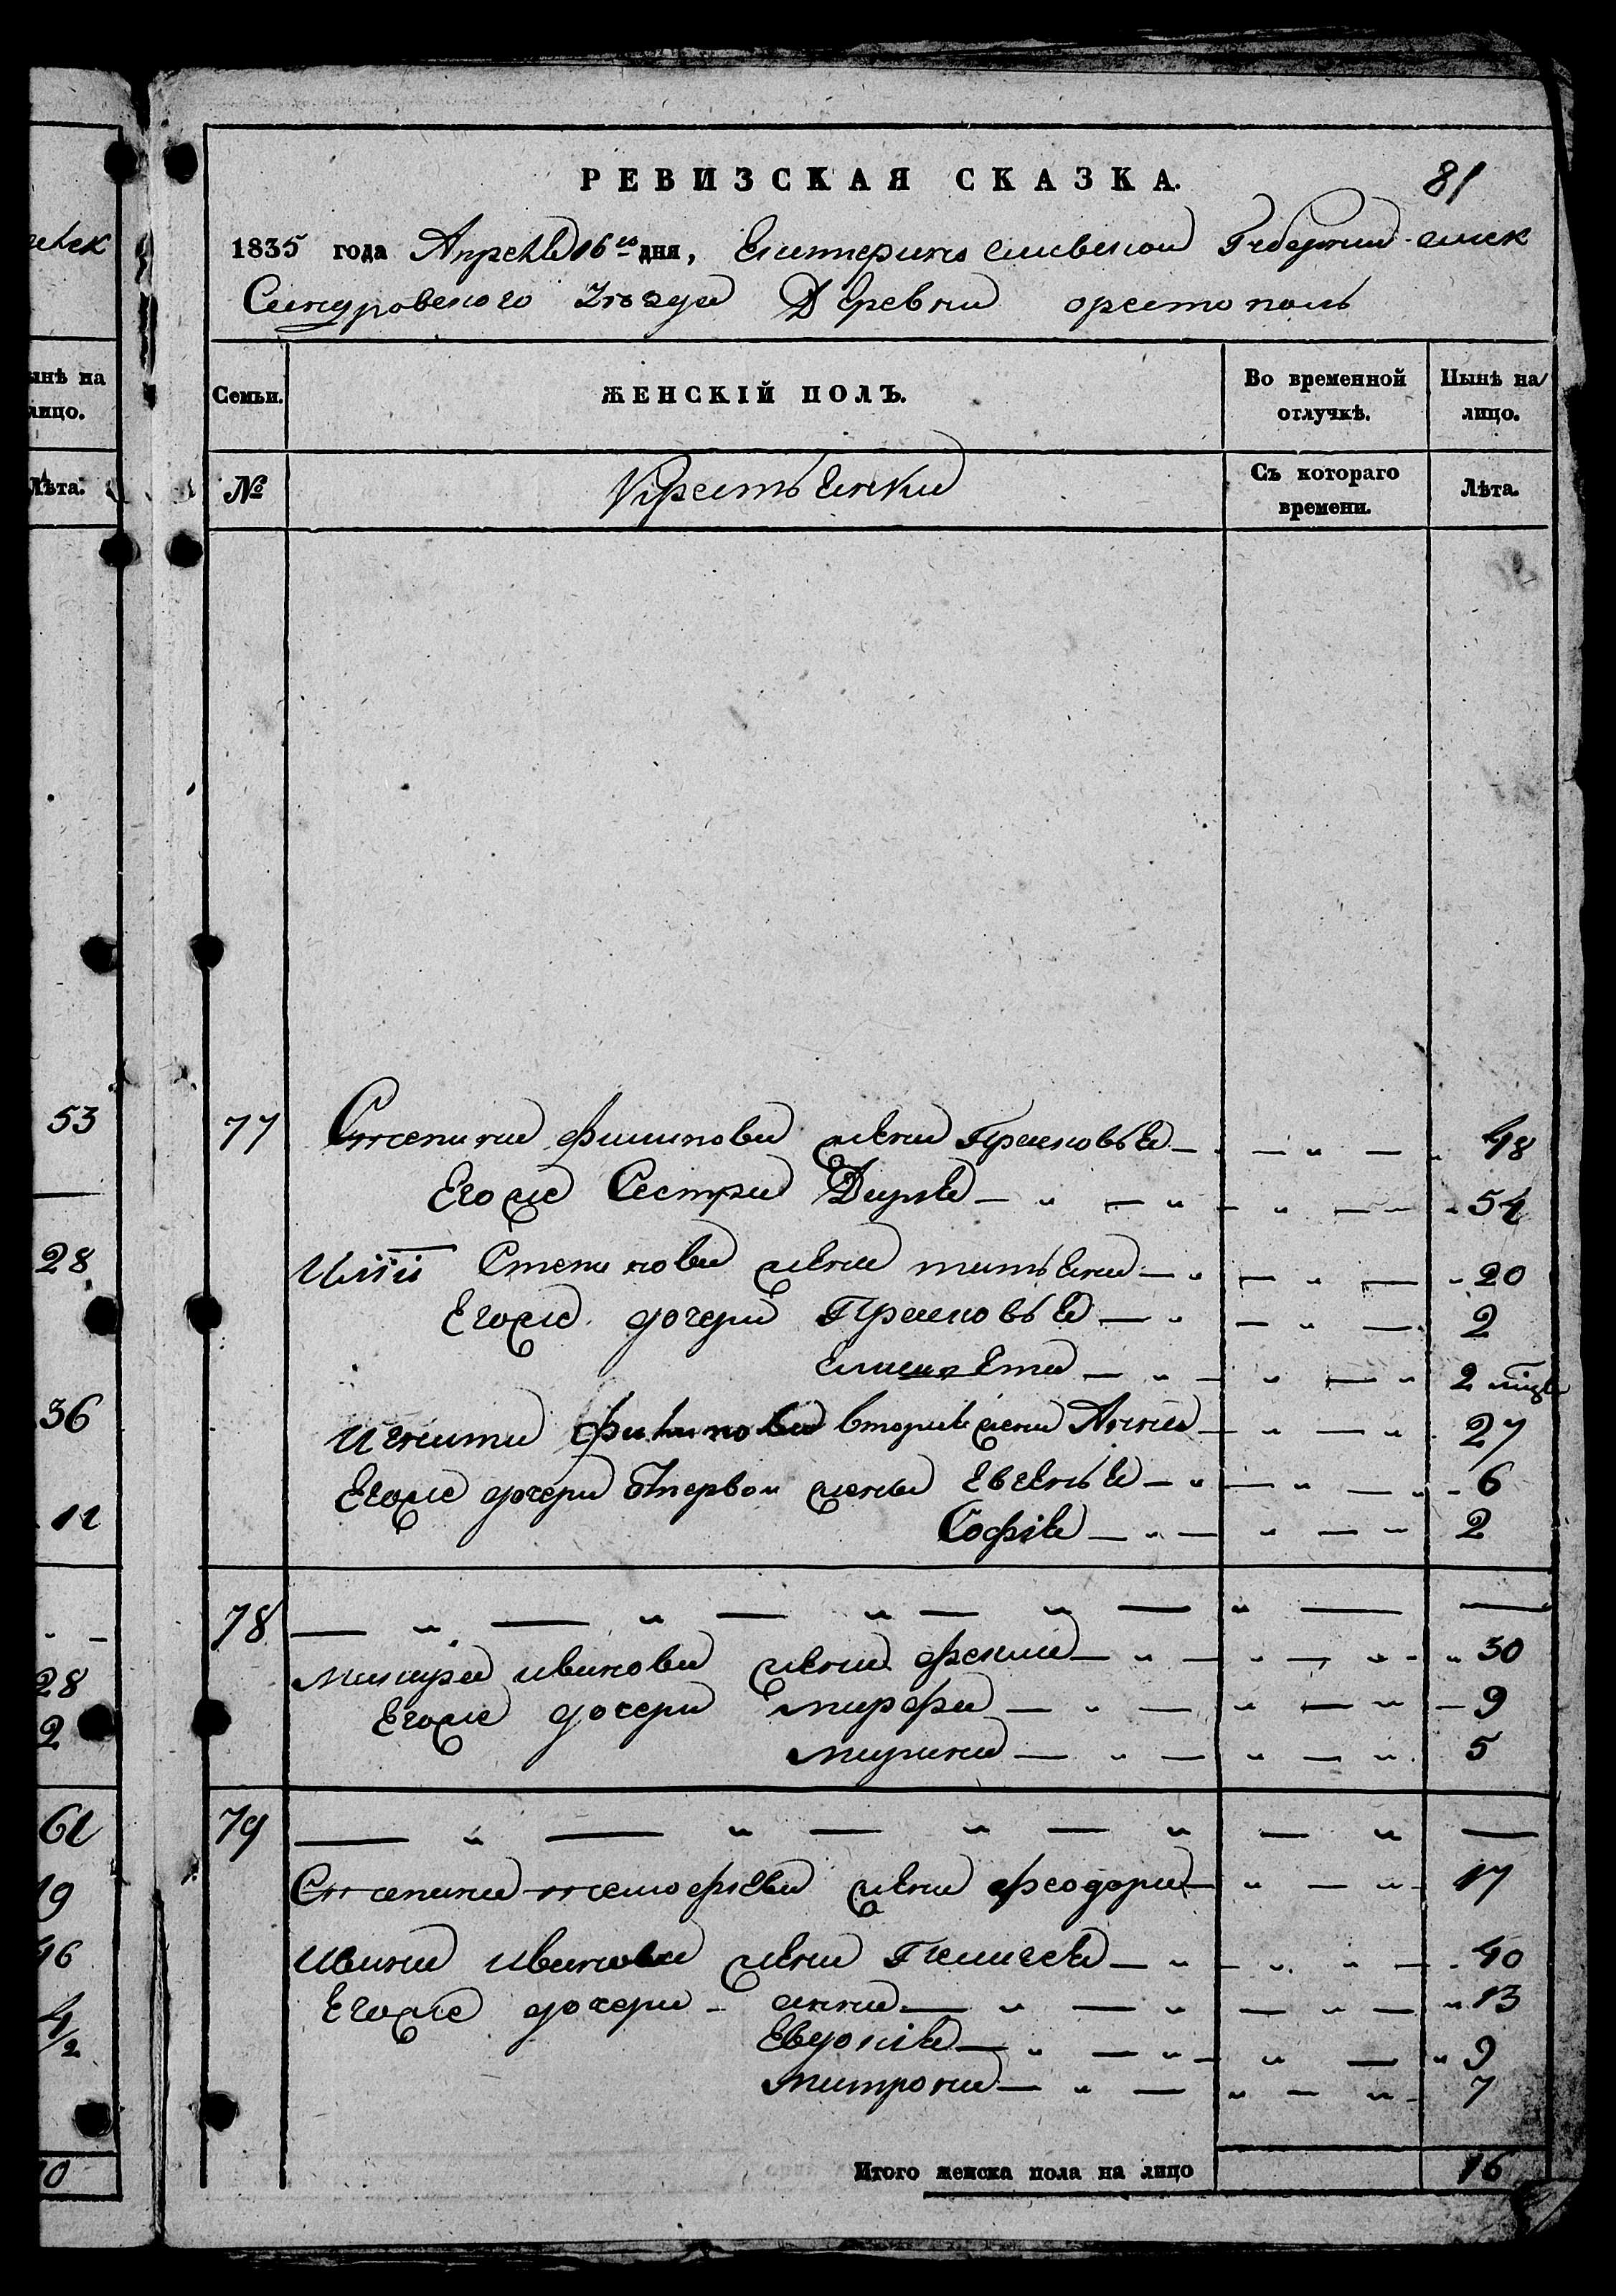 енск
ынѣ на
лицо.
Лѣта.
53
28
36
11
28
2
61
19
46
4/2
0
РЕВИЗСКАЯ СКАЗКА.
81
1835 года Апреля 16го дня, Екатеринославской Губернии алек
сандровского Уезда Деревни орестополь
Семьи.
ЖЕНСКІЙ ПОЛЪ.
Во временной отлучкѣ.
Нынѣ на лицо.
№
Крестьянки
Съ котораго времени.
Лѣта.
77 Степана филипова жена Прасковья 48
Егоже Сестра Дарья 54
Илїи Степанова жена татьяна 20
Егоже дочери Прасковья 2
елисавета 2 мїсяца
Игната филипова вторая жена Анна 27
Егоже дочери Отпервой жены Евгенья 6
Софія 2
78
макара иванова жена фекла 30
Егоже дочери марфа 9
марина 5
79
Степана тимофеева жена феодора 17
ивана иванова жена Пелагея 40
Егоже дочери анна 13
Евдокія 9
матрона 7
Итого женска пола на лицо 16